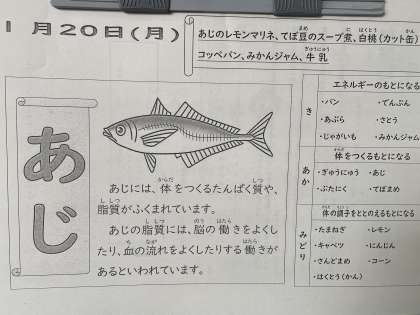 1月20日(月)
あじのレモンマリネ、てぼ豆のスープ煮、白桃(カット缶)
コッペパン、みかんジャム、牛乳
あじ
あじには、体をつくるたんぱく質や、
脂質がふくまれています。
あじの脂質には、脳の働きをよくし
たり、血の流れをよくしたりする働きが
あるといわれています。
エネルギーのもとになる
き
・パン ・てんぷん
・あぶら ・さとう
・じゃがいも ・みかんジャム
体をつくるもとになる
あか
・ぎゅうにゅう ・あじ
・ぶたにく ・てぼまめ
体の調子をととのえるもとになる
みどり
・たまねぎ ・レモン
・キャベツ ・にんじん
・さんどまめ ・コーン
・はくとう(かん)